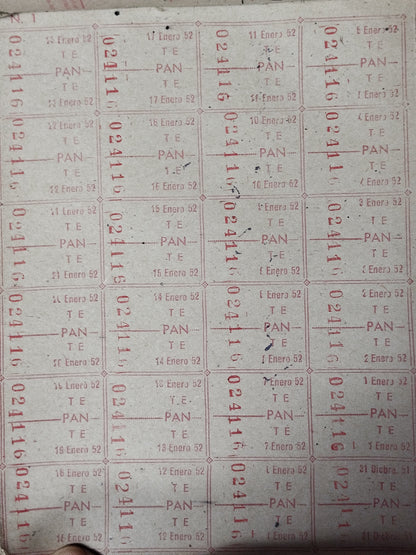 N. 1
024116
Enero 52
TE
PAN
TE
Enero 52
024116
17 Enero 52
TE
PAN
TE
17 Enero 52
024116
11 Enero 52
TE
PAN
TE
11 Enero 52
024116
5 Enero 52
TE
PAN
TE
5 Enero 52
024116
Enero 52
TE
PAN
TE
Enero 52
024116
16 Enero 52
TE
PAN
TE
16 Enero 52
024116
10 Enero 52
TE
PAN
TE
10 Enero 52
024116
4 Enero 52
TE
PAN
TE
4 Enero 52
024116
21 Enero 52
TE
PAN
TE
21 Enero 52
024116
15 Enero 52
TE
PAN
TE
15 Enero 52
024116
Enero 52
TE
PAN
TE
Enero 52
024116
3 Enero 52
TE
PAN
TE
3 Enero 52
024116
Enero 52
TE
PAN
TE
Enero 52
024116
14 Enero 52
TE
PAN
TE
14 Enero 52
024116
Enero 52
TE
PAN
TE
Enero 52
024116
2 Enero 52
TE
PAN
TE
2 Enero 52
024116
19 Enero 52
TE
PAN
TE
19 Enero 52
024116
13 Enero 52
TE
PAN
TE
13 Enero 52
024116
7 Enero 52
TE
PAN
TE
7 Enero 52
024116
1 Enero 52
TE
PAN
TE
1 Enero 52
024116
18 Enero 52
TE
PAN
TE
18 Enero 52
024116
12 Enero 52
TE
PAN
TE
12 Enero 52
024116
Enero 52
TE
PAN
TE
Enero 52
024116
31 Dicbre. 51
TE
PAN
TE
31 Dicbre. 51